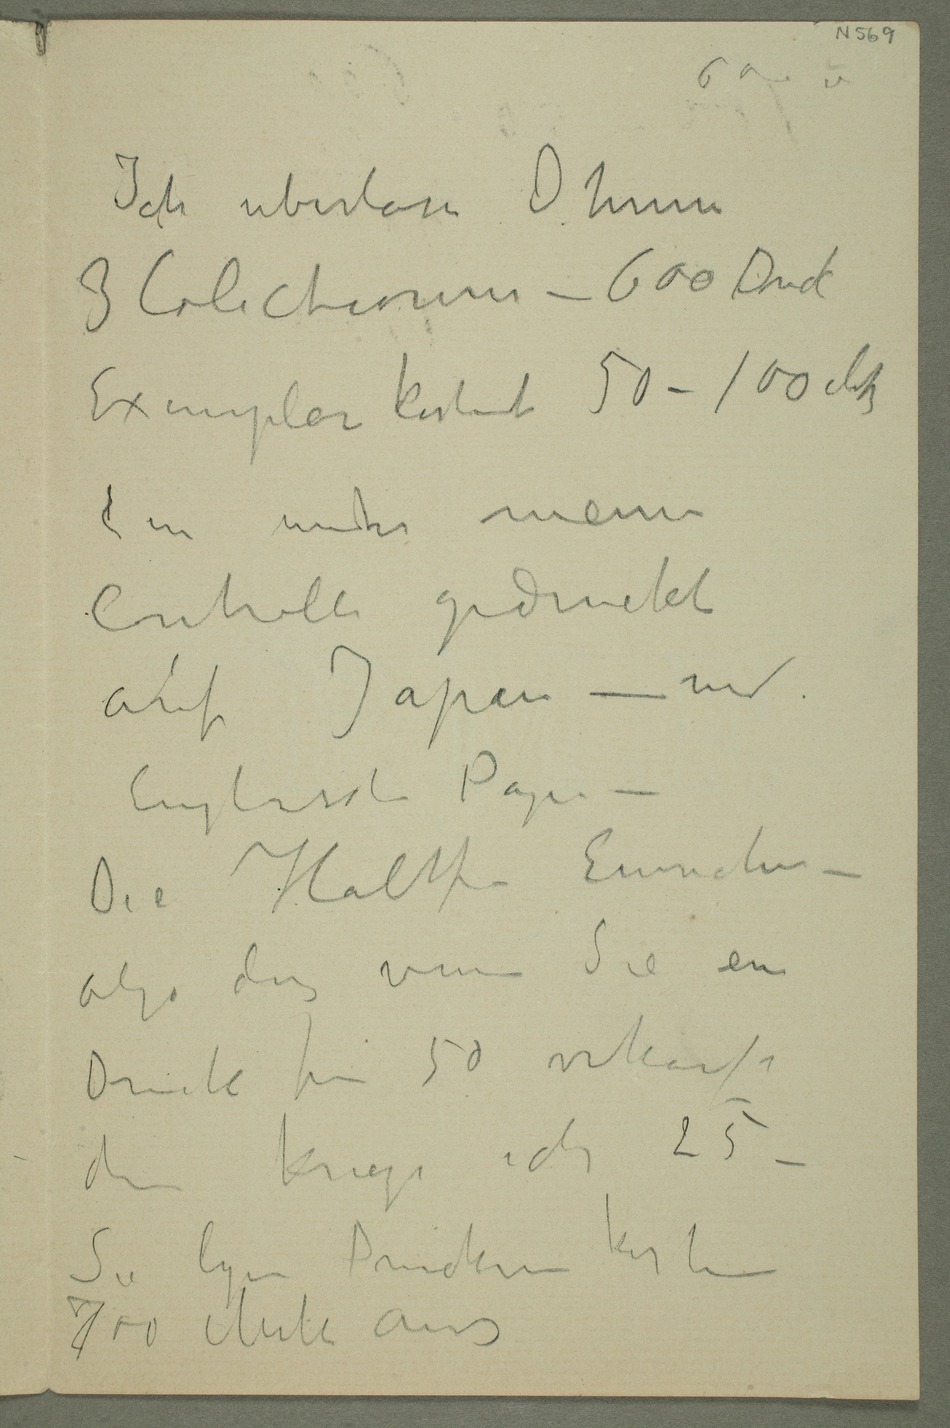 N 569
600
Ich uberlasse Ihnen
3 Colectionen – 600 Druck
Exemplar kostet 50 – 100 Mk
Em unter meine
Controlle gedruckt
auf Japan – und
Englisch Papir –
Die Halfte Einnahm –
also das wenn Sie en
Druck für 50 verkauft
den kriege ich 25 –
Sie legen Druckerei kosten
700 Mark aus